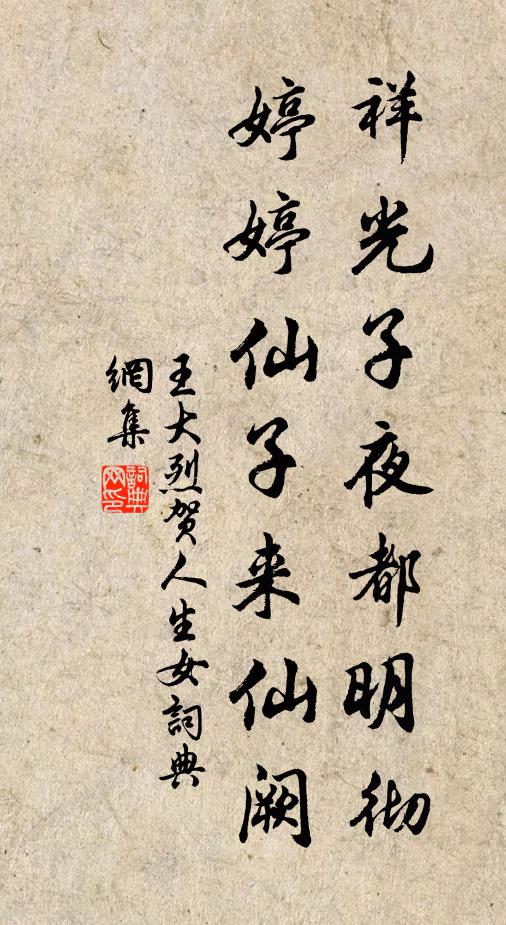 祥光子夜都明彻
婷婷仙子来仙阙
王大烈贺人生女詞典
網集
詞典
网印